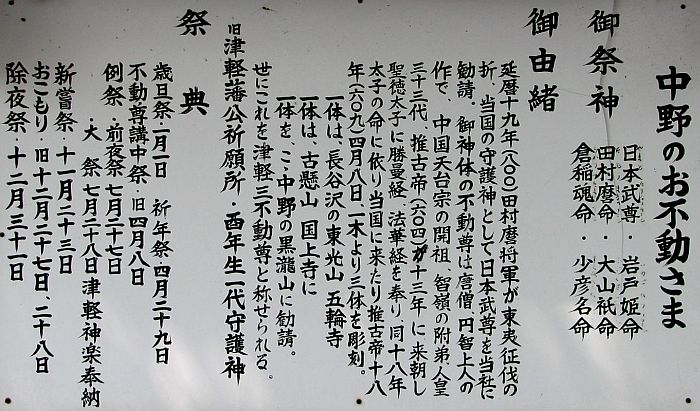 中野のお不動さま
御祭神
日本武尊・岩戸姫命
田村麿命・大山祇命
倉稲魂命・少彦名命
御由緒
延暦十九年(八〇〇)田村麿将軍が東夷征伐の
折、当国の守護神として日本武尊を当社に
勧請。御神体の不動尊は唐僧、円智上人の
作で、中国天台宗の開祖、智嶺の附弟、人皇
三十三代、推古帝(六〇四)が十三年に来朝し
聖徳太子に勝曼経、法華経を奉り、同十八年
太子の命に依り当国に来たり推古帝十八
年(六〇九)四月八日、一木より三体を彫刻。
一体は、長谷沢の東光山 五輪寺
一体は、古懸山 国上寺に
一体を、ここ中野の黒瀧山に勧請。
世にこれを津軽三不動尊と称せられる。
旧津軽藩公祈願所・酉年生一代守護神
祭典
歳旦祭・一月一日 祈年祭・四月二十九日
不動尊講中祭・旧四月八日
例祭・前夜祭 七月二十七日
・大祭 七月二十八日 津軽神楽奉納
新嘗祭・十一月二十三日
おこもり・旧十二月二十七日、二十八日
除夜祭・十二月三十一日